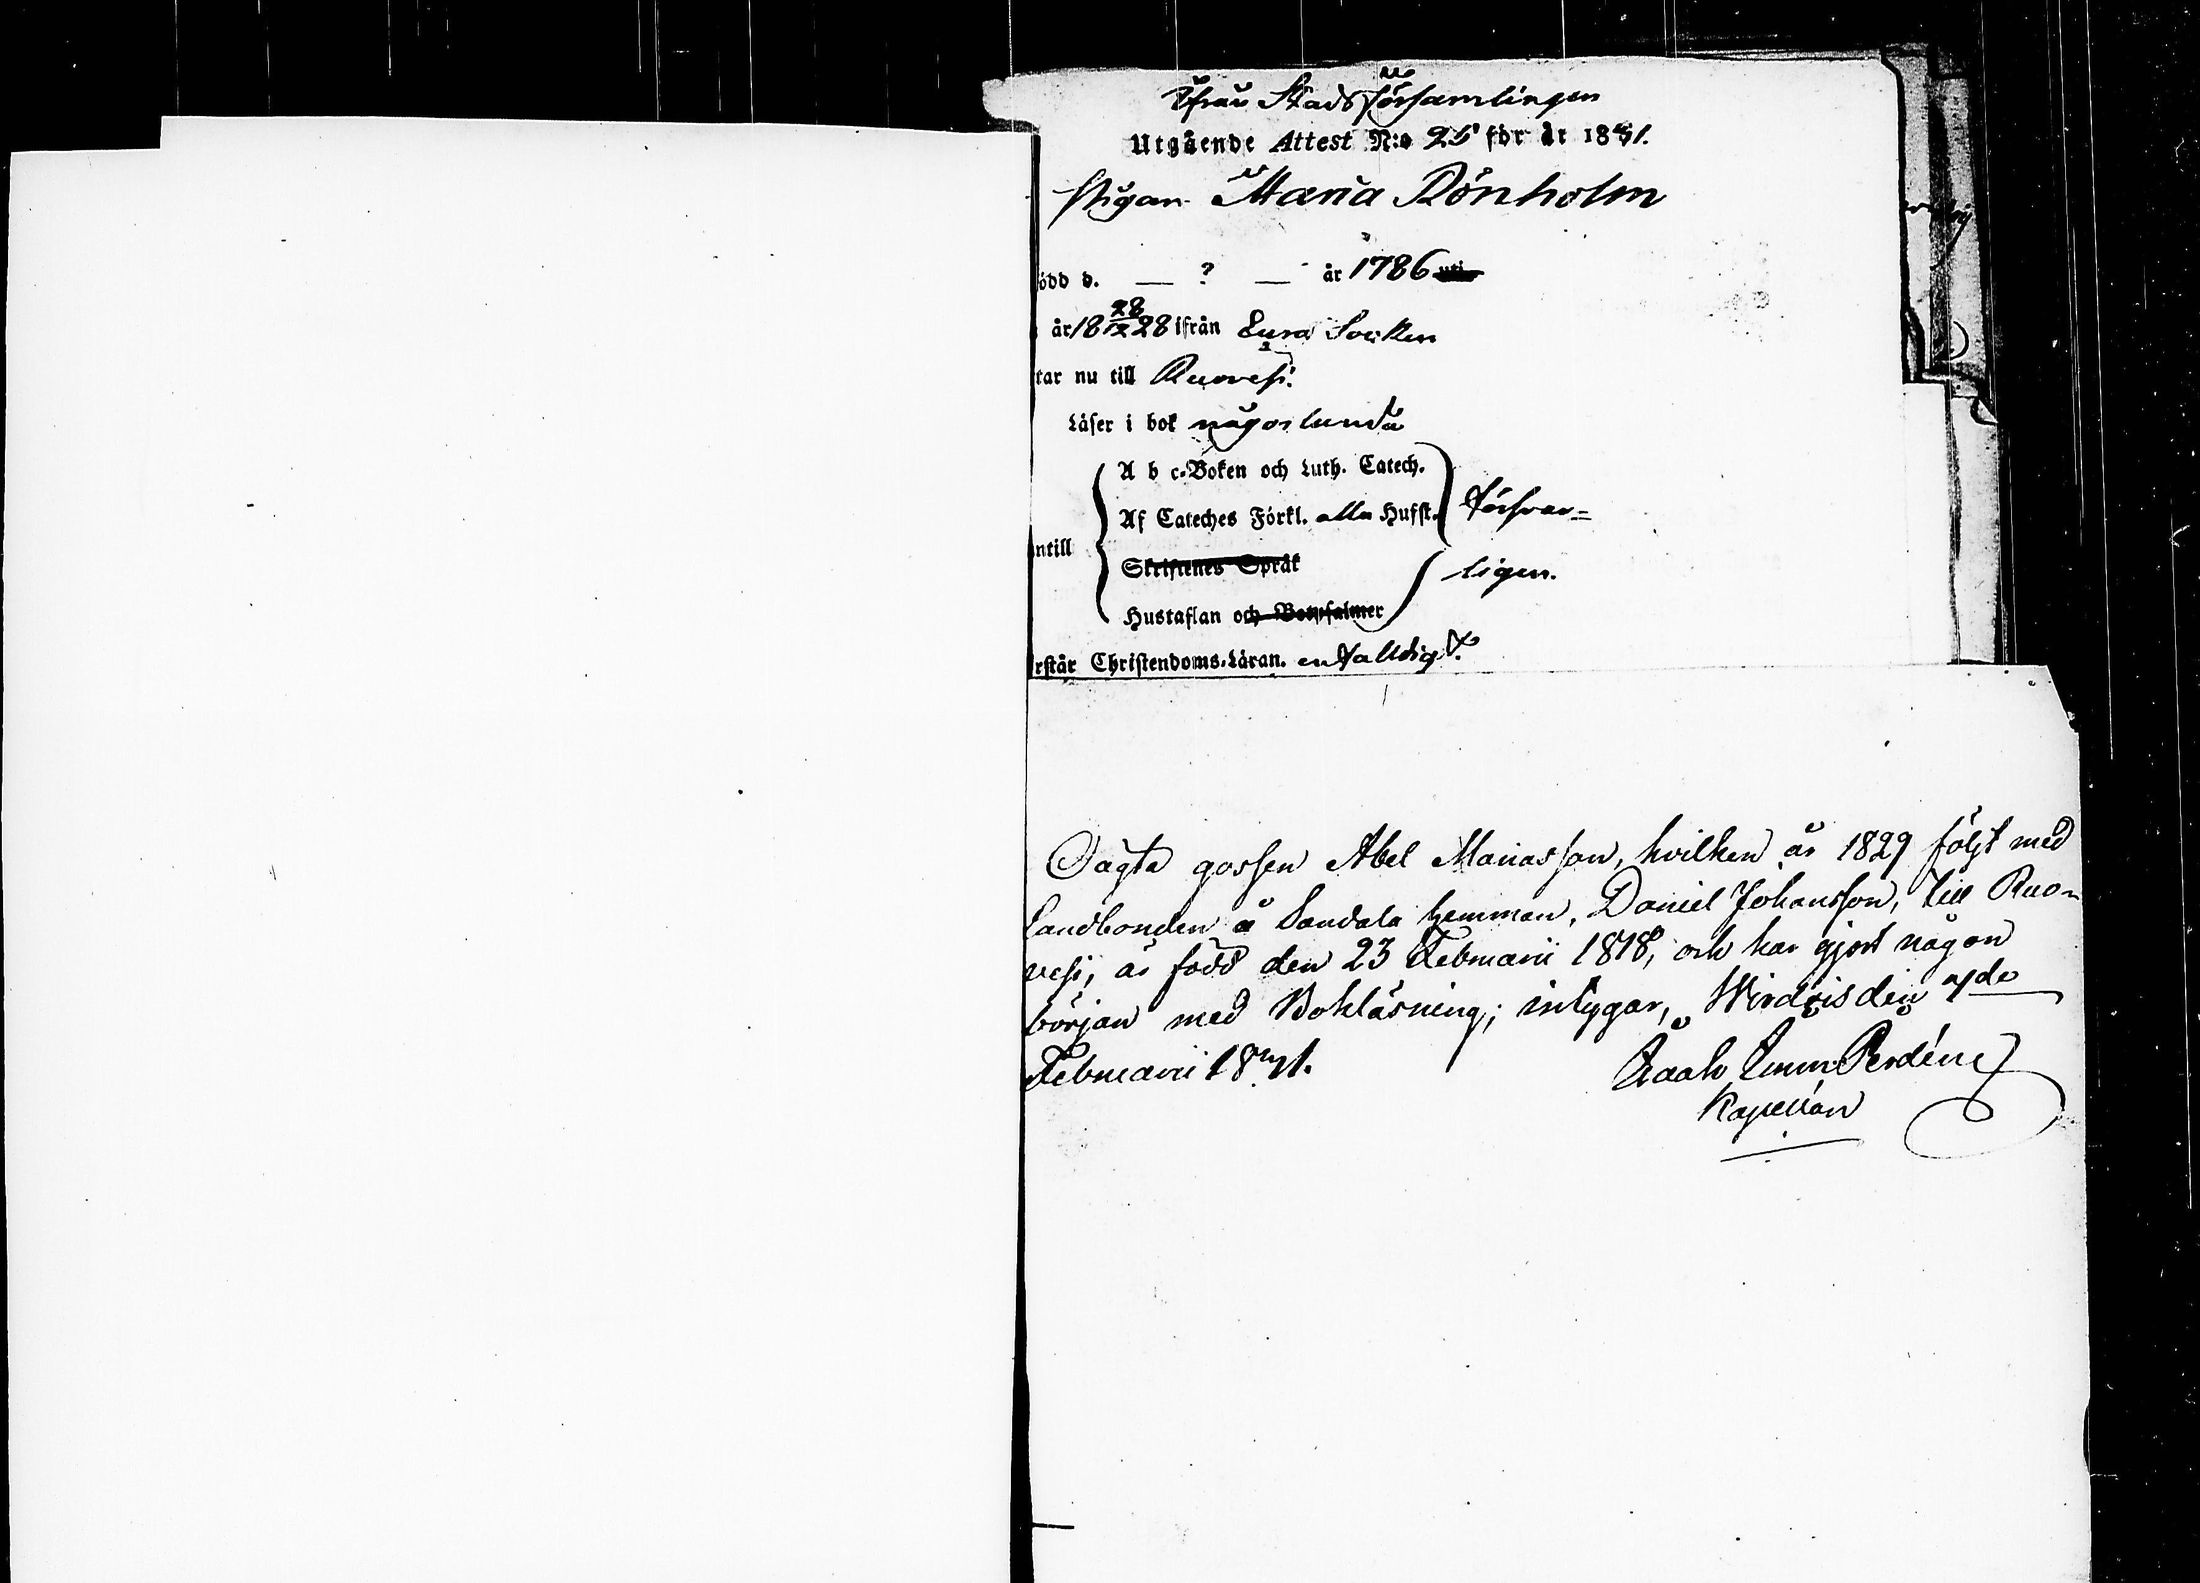 Ifrån Stadsförsamlingen
Utgående Attest N:o 25 för år 1831.
Pigan Maria Rönholm
ödd d. — ? — år 1786 uti
år 18 28/12 28 ifrån Eura Socken
tar nu till Ruovesi.
Läser i bok någorlunda
A b c-Boken och Luth. Catech.
Af Cateches Förkl. alla Hufst. försvar=
ntill
Skriftenes Språk ligen.
Hustaflan och Botpsalmer
rstår Christendoms-Läran. enfalldigt.
Oägta gossen Abel Mariasson, hvilken år 1829 följt med
Landbonden å Sandala hemman, Daniel Johansson, till Ruo-
vesi, är född den 23 Februarii 1818, och har gjort någon
början med Bokläsning; intygar, Wirdois den 7de
Februarii 1831. Isaak Emm:
Kapellan